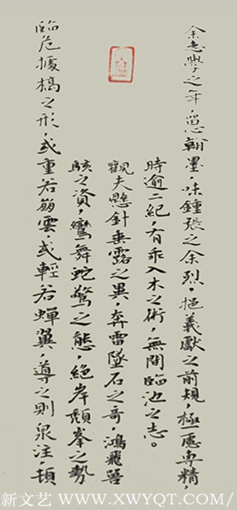 余志學之年,留心翰墨,味鍾張之余烈,挹羲獻之前規,極慮專精,
時逾二紀,有乖入木之術,無間臨池之志。
觀夫懸針垂露之異,奔雷墜石之奇,鴻飛獸
駭之資,鸞舞蛇驚之態,絕岸頹峯之勢
臨危據槁之形,或重若崩雲,或輕若蟬翼,導之則泉注,頓
新文艺 WWW.XWYQT.COM/